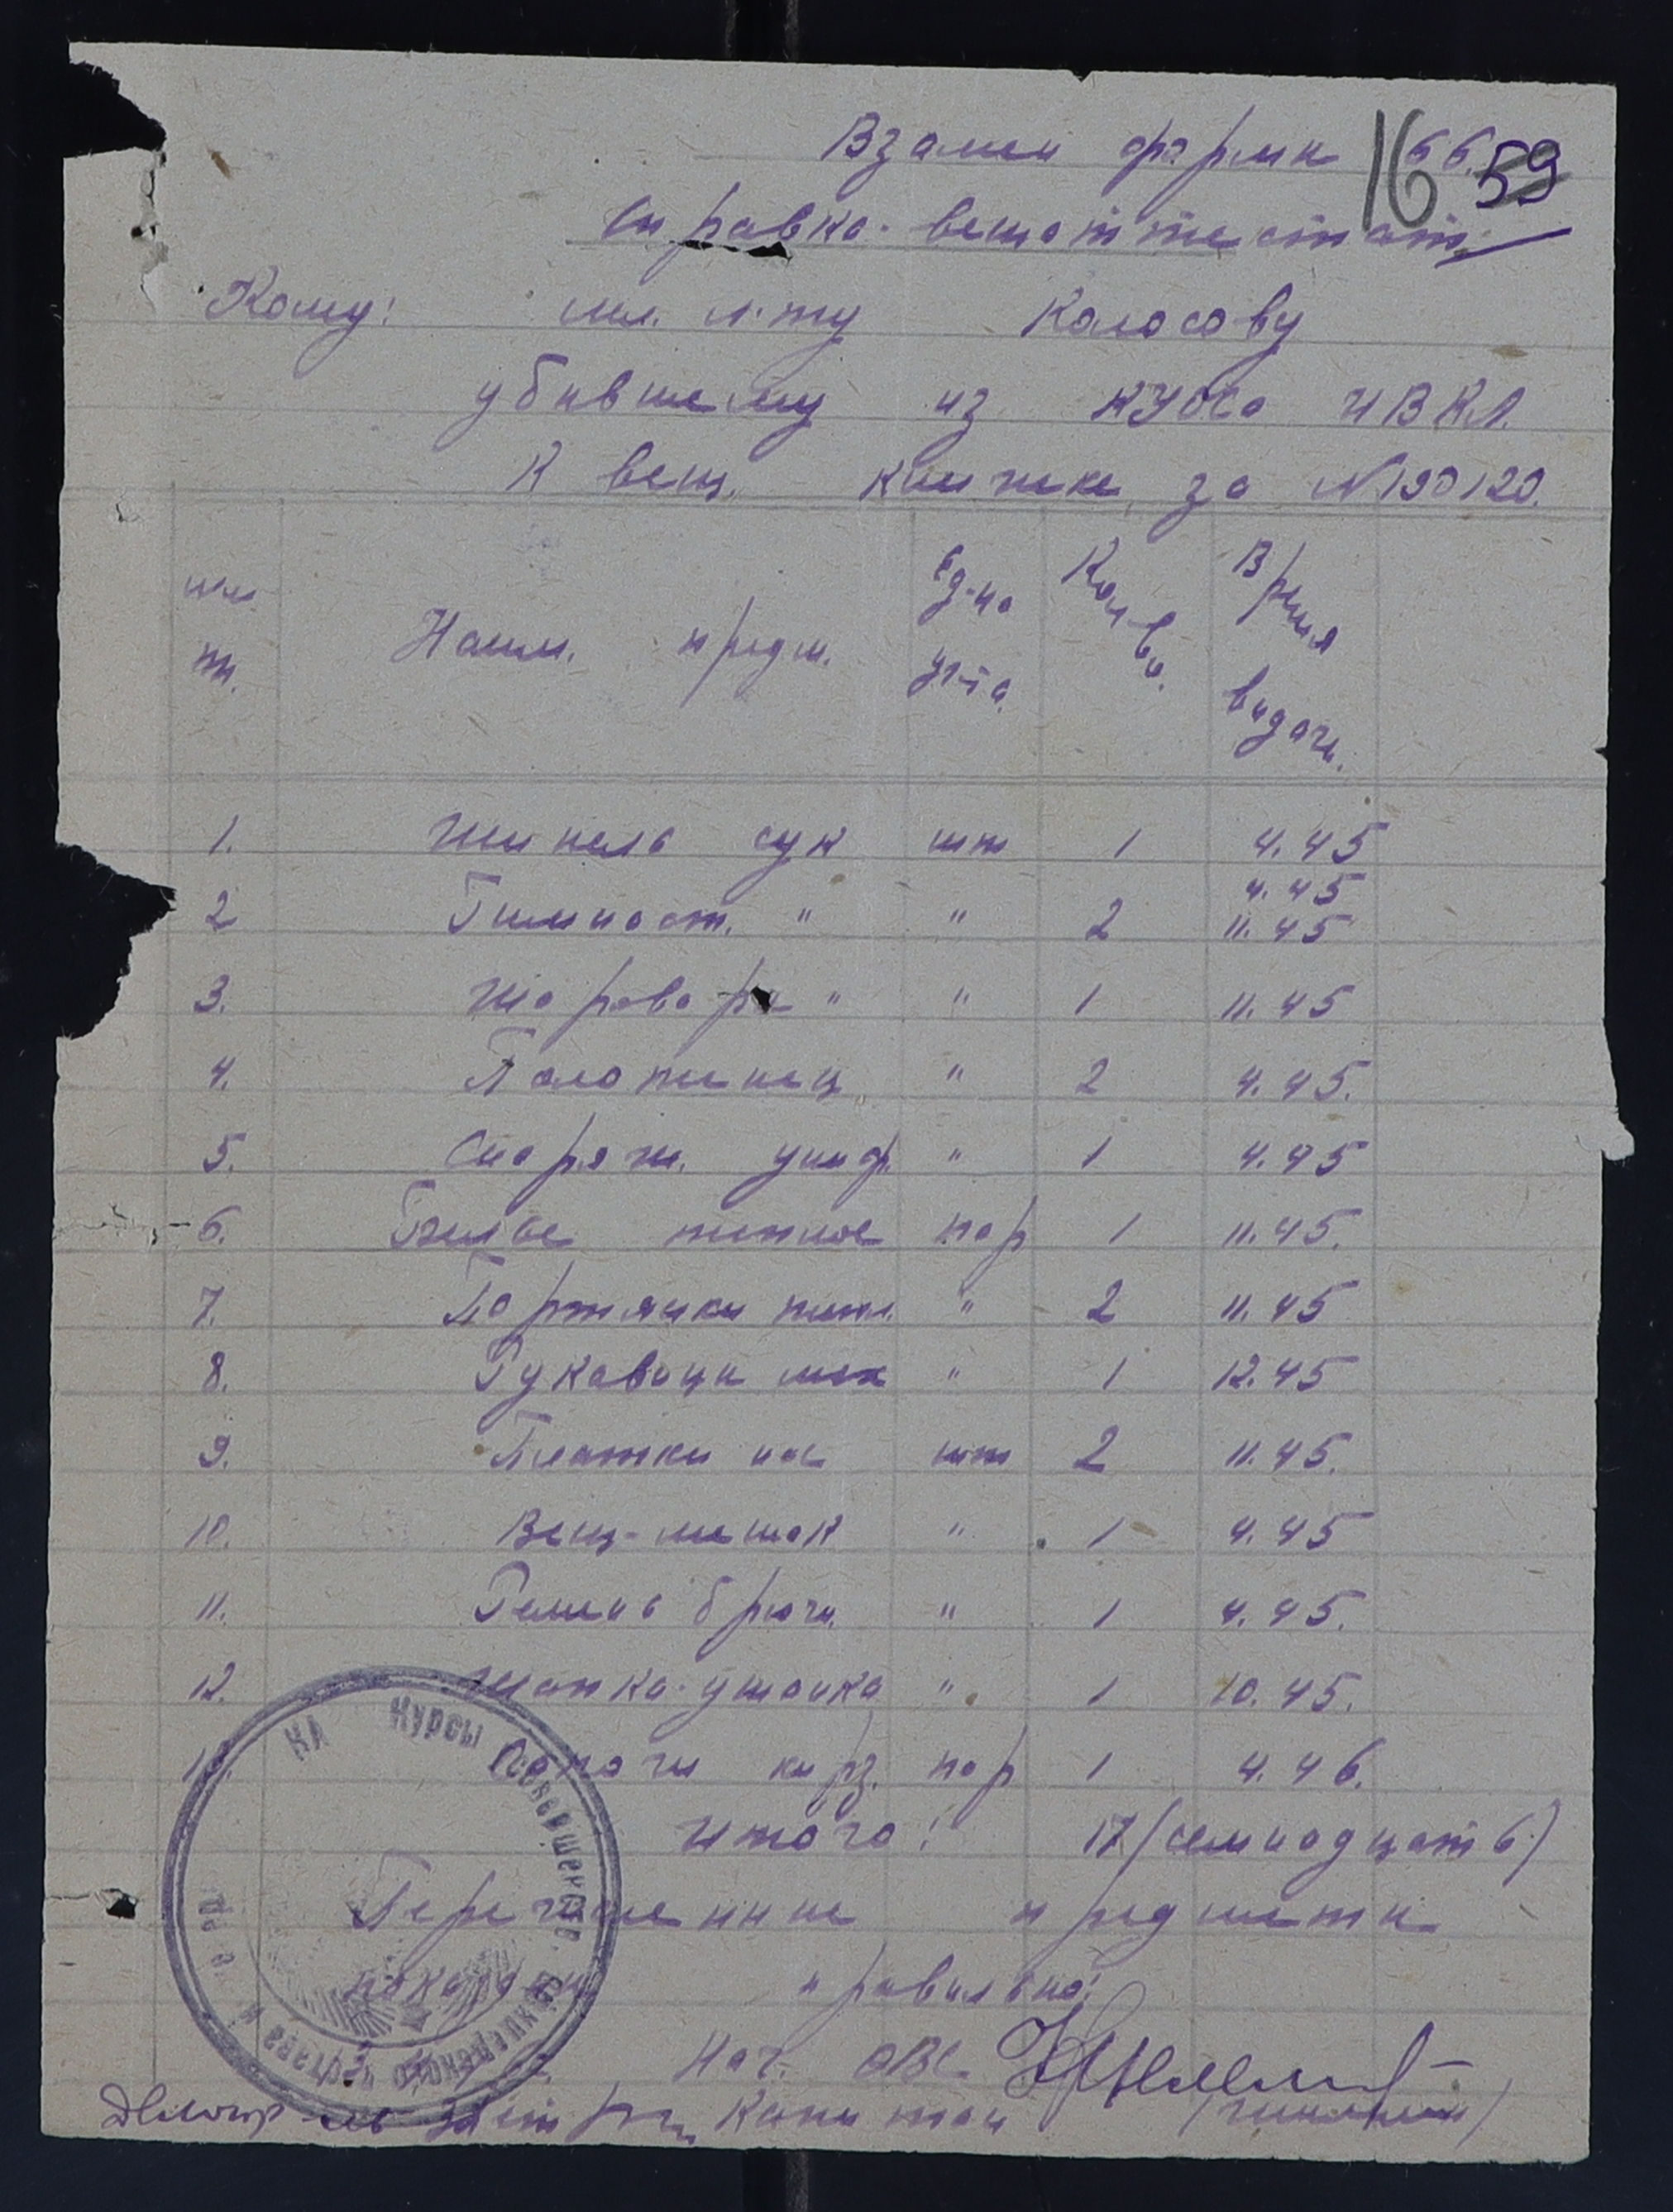 Взамен формы 66. 59
16
Справка-вещаттестат
Кому: мл. л-ту Колосову
убывшему из КУОСа ИВКЛ.
К вещ. книжке за №190120.
Наим. предм. Ед-ца Кол-во. Время выдачи.
1. Шинель сук шт 1 4.45
4.45
2 Гимнаст. " " 2 11.45
3. Шаровары " " 1 11.45
4. Полотенец " 2 4.45.
5. Снаряж. униф. " 1 4.45
6. Белье теплое пар 1 11.45.
7. Портянки тепл. " 2 11.45
8. Рукавицы мех " 1 12.45
9. Платки нос шт 2 11.45.
10. Вещ-мешок " 1 4.45
11. Ремень брючн. " 1 4.45.
12. Шапка-ушанка " 1 10.45.
13. Сапоги кирз. пар 1 4.46.
Итого: 17 (семнадцать)
Перечисленные предметы
показаны правильно:
Нач. ОВС
Капитан
КА Курсы